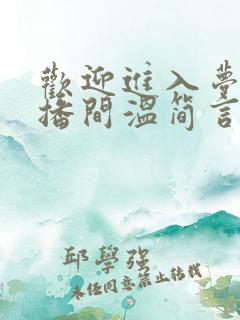 歡迎進入夢
播間溫简言
邱學強
未经同意禁止转载